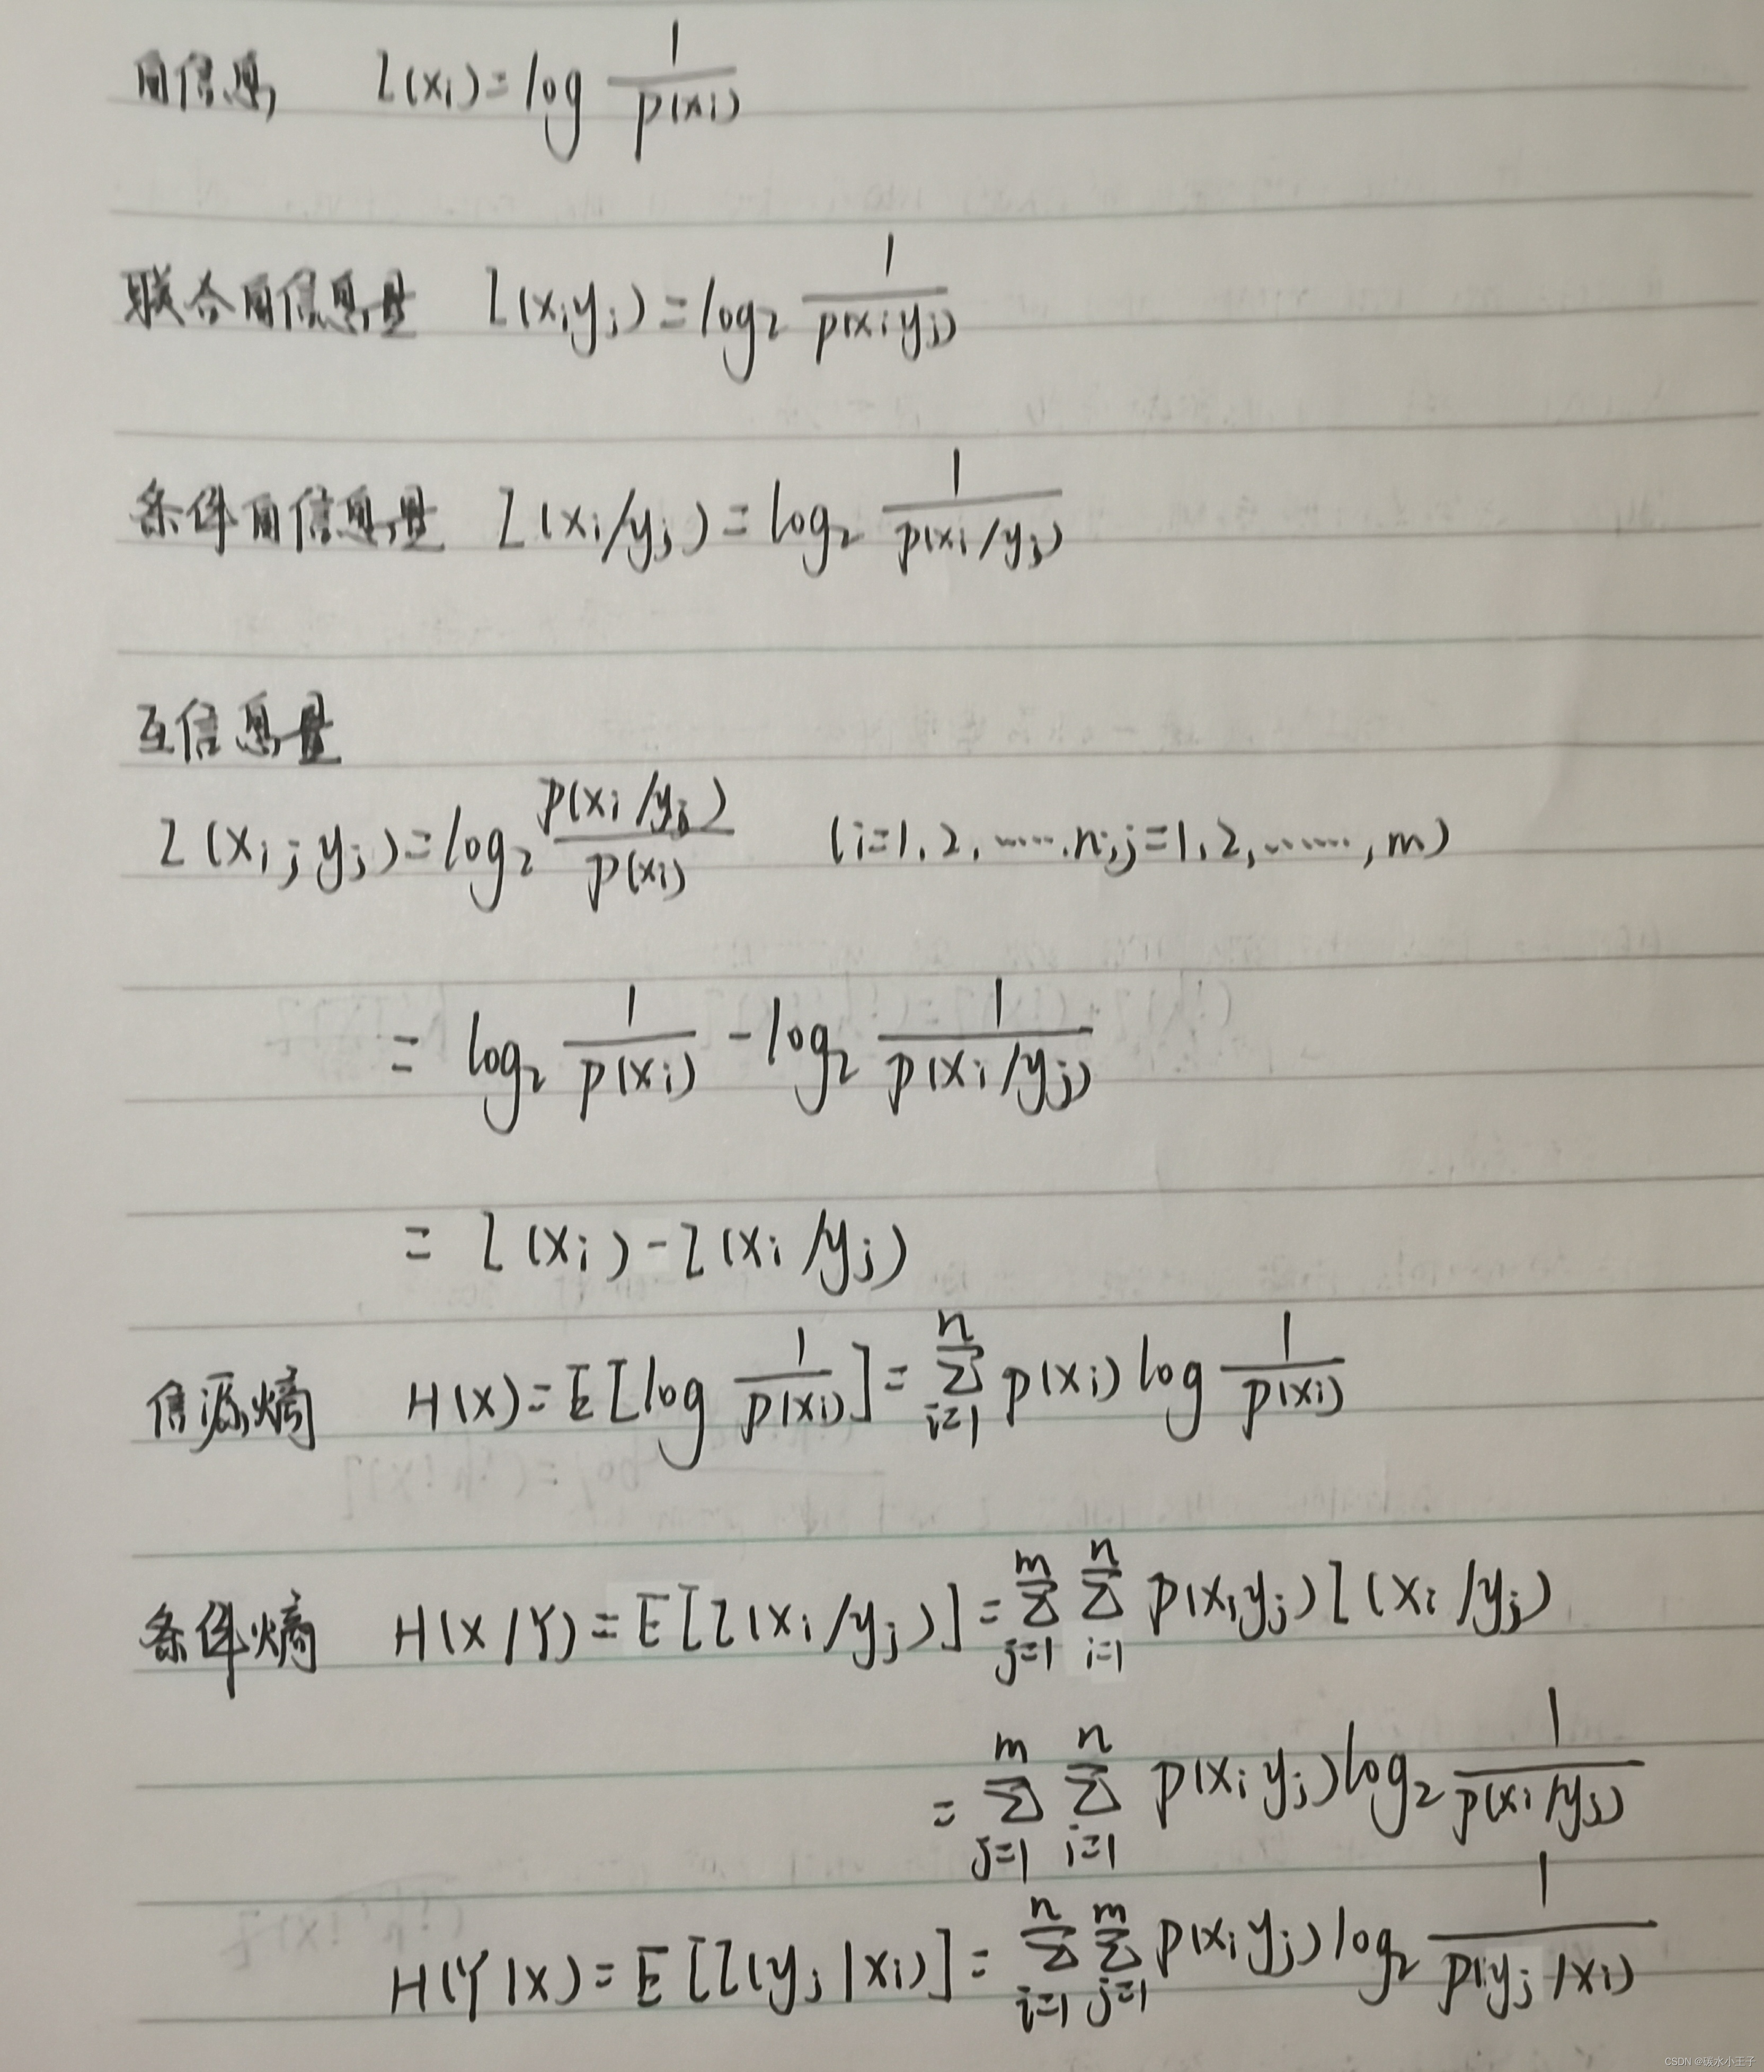 自信息 I(xi)=log 1/p(xi)
联合自信息量 I(xiyj)=log2 1/p(xiyj)
条件自信息量 I(xi/yj)=log2 1/p(xi/yj)
互信息量
I(xi;yj)=log2 p(xi/yj)/p(xi) (i=1,2,……,n;j=1,2,……,m)
= log2 1/p(xi) - log2 1/p(xi/yj)
= I(xi)-I(xi/yj)
信源熵 H(X)=E[log 1/p(xi)]=∑_{i=1}^{n} p(xi) log 1/p(xi)
条件熵 H(X/Y)=E[I(xi/yj)]=∑_{j=1}^{m} ∑_{i=1}^{n} p(xiyj)I(xi/yj)
=∑_{j=1}^{m} ∑_{i=1}^{n} p(xiyj)log2 1/p(xi/yj)
H(Y|X)=E[I(yj|xi)]=∑_{i=1}^{n} ∑_{j=1}^{m} p(xiyj)log2 1/p(yj/xi)
CSDN @碳水小王子